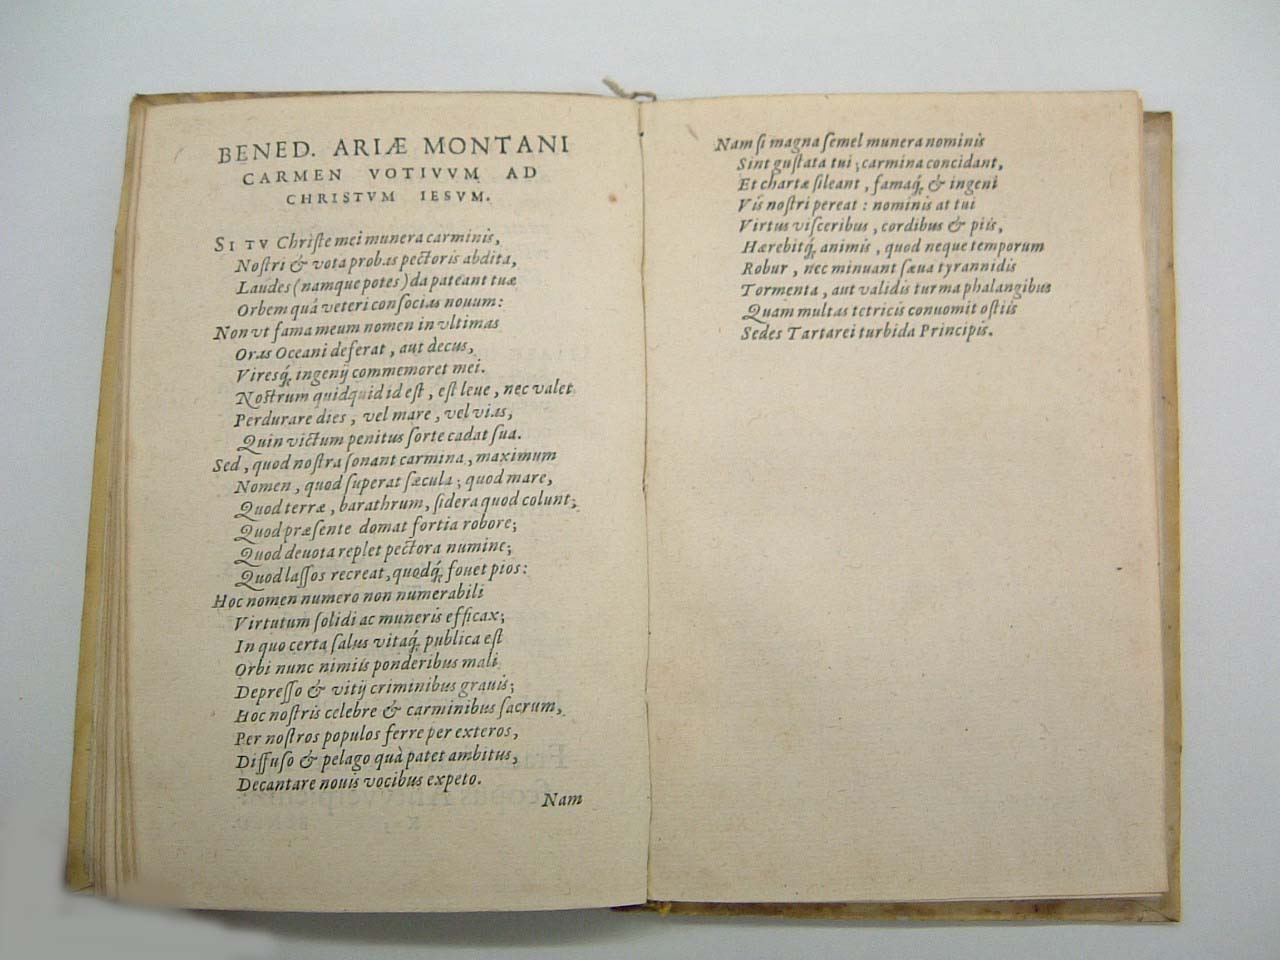 BENED. ARIÆ MONTANI
CARMEN VOTIVVM AD
CHRISTVM IESVM.
SI TV Chriſte mei munera carminis,
Noſtri & vota probas pectoris abdita,
Laudes (namque potes) da pateant tuæ
Orbem quâ veteri conſocias nouum:
Non vt fama meum nomen in vltimas
Oras Oceani deferat, aut decus,
Viresq́; ingenij commemoret mei.
Noſtrum quidquid id eſt, eſt leue, nec valet
Perdurare dies, vel mare, vel vias,
Quin victum penitus ſorte cadat ſua.
Sed, quod noſtra ſonant carmina, maximum
Nomen, quod ſuperat ſæcula; quod mare,
Quod terræ, barathrum, ſidera quod colunt;
Quod præſente domat fortia robore;
Quod deuota replet pectora numine;
Quod laſſos recreat, quodq́; fouet pios:
Hoc nomen numero non numerabili
Virtutum ſolidi ac muneris efficax;
In quo certa ſalus vitaq́; publica eſt
Orbi nunc nimiis ponderibus mali
Depreſſo & vitij criminibus grauis;
Hoc noſtris celebre & carminibus ſacrum,
Per noſtros populos ferre per exteros,
Diffuſo & pelago quà patet ambitus,
Decantare nouis vocibus expeto.
Nam
Nam ſi magna ſemel munera nominis
Sint guſtata tui; carmina concidant,
Et chartæ ſileant, famaq́; & ingenî
Vis noſtri pereat: nominis at tui
Virtus viſceribus, cordibus & piis,
Hærebitq́; animis, quod neque temporum
Robur, nec minuant ſæua tyrannidis
Tormenta, aut validis turma phalangibus
Quam multas tetricis conuomit oſtiis
Sedes Tartarei turbida Principis.